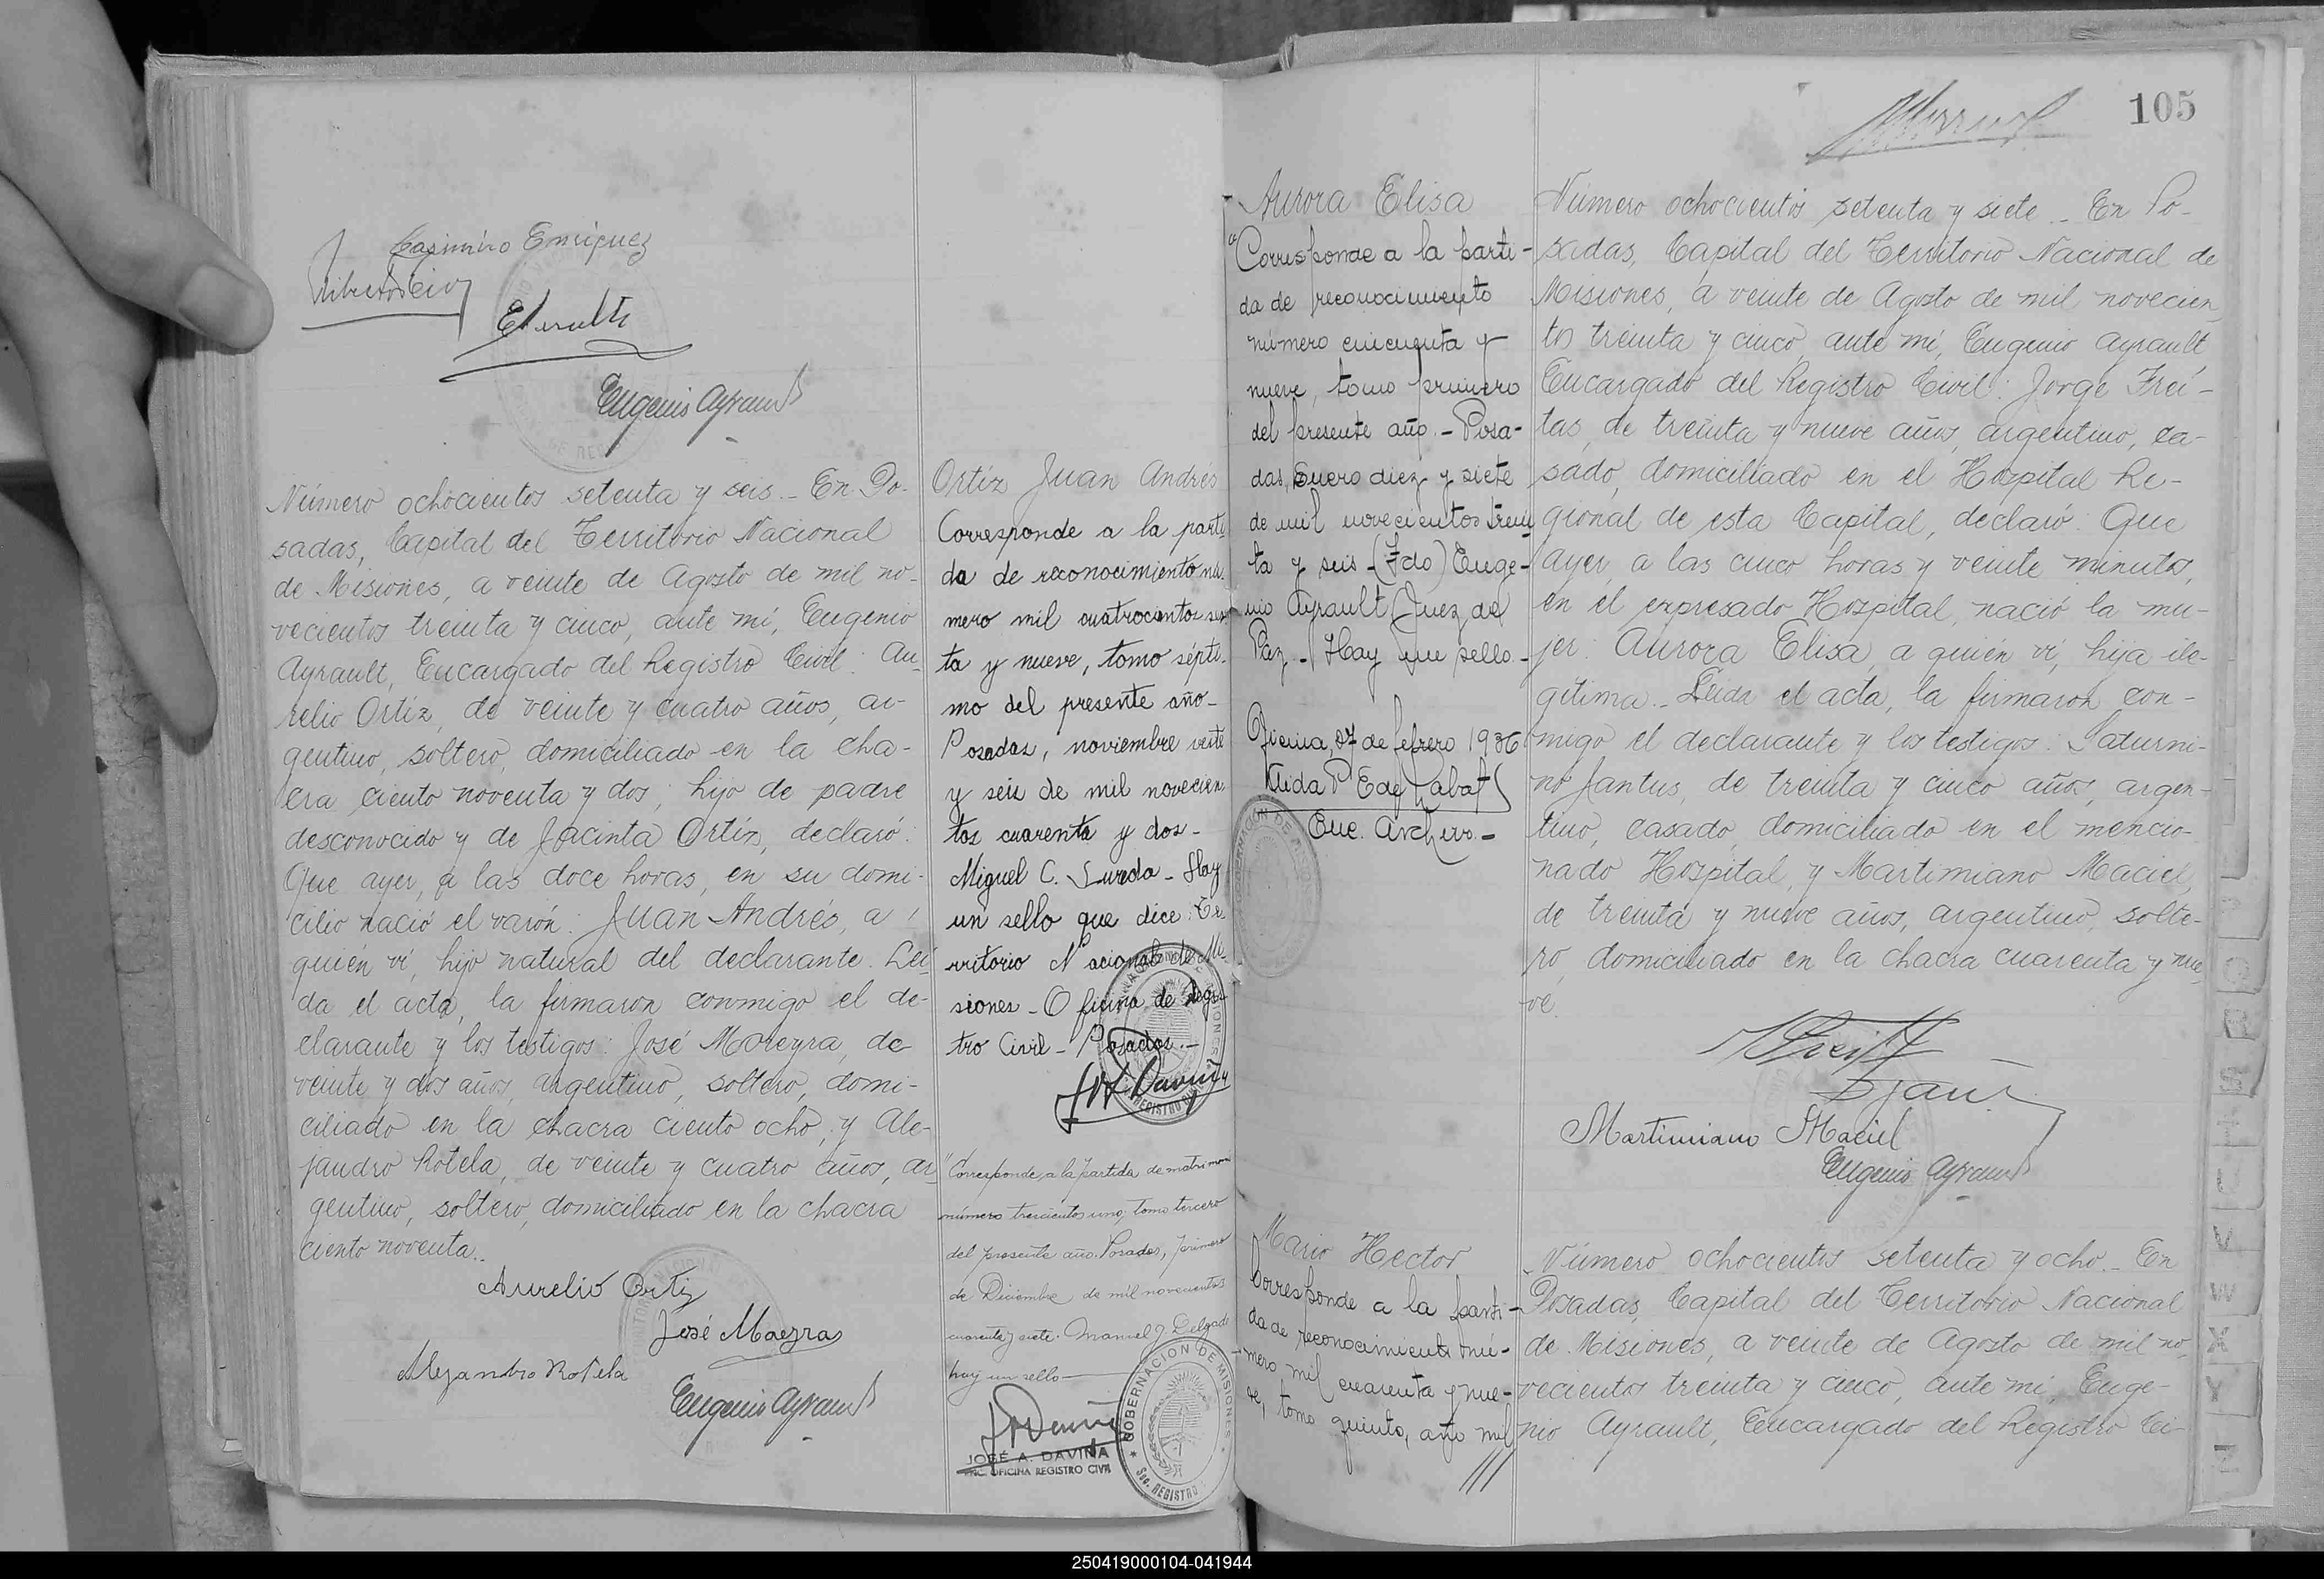 Casimiro Enriquez
Eugenio Ayrault
Número ochocientos setenta y seis._ En Po-
sadas, Capital del Territorio Nacional
de Misiones, a veinte de Agosto de mil no-
vecientos treinta y cinco, ante mí, Eugenio
Ayrault, Encargado del Registro Civil: Au-
relio Ortíz, de veinte y cuatro años, ar-
gentino, soltero, domiciliado en la cha-
cra ciento noventa y dos; hijo de padre
desconocido y de Jacinta Ortíz, declaró:
Que ayer, a las doce horas, en su domi-
cilio nació el varón: Juan Andrés, a
quién ví, hijo natural del declarante. Leí-
da el acta, la firmaron conmigo el de-
clarante y los testigos: José Moreyra, de
veinte y dos años, argentino, soltero, domi-
ciliado en la chacra ciento ocho, y Ale-
jandro Rotela, de veinte y cuatro años, ar-
gentino, soltero, domiciliado en la chacra
ciento noventa._
Aurelio Ortiz
José Maeyra
Alejandro Rotela
Eugenio Ayrault
Ortíz Juan Andrés
Corresponde a la parti-
da de reconocimiento nú-
mero mil cuatrocientos sesen
ta y nueve, tomo sépti-
mo del presente año-
Posadas, noviembre veinte
y seis de mil novecien
tos cuarenta y dos-
Miguel C. Sureda - Hay
un sello que dice: Te-
rritorio Nacional de Mi-
siones - Oficina de Regis-
tro Civil - Posadas.-
"Corresponde a la partida de matrimonio
número trescientos uno, tomo tercero
del presente año. Posadas, primero
de Diciembre de mil novecientos
cuarenta y siete. Manuel J. Delgado
hay un sello
JOSÉ A. DAVIÑA
ENC. OFICINA REGISTRO CIVIL
GOBERNACION DE MISIONES
Sec. REGISTRO
105
Aurora Elisa
"Corresponde a la parti-
da de reconocimiento
número cincuenta y
nueve, tomo primero
del presente año.- Posa-
das, Enero diez y siete
de mil novecientos trein
ta y seis - (Fdo) Euge-
nio Ayrault Juez de
Paz - Hay un sello.-
Oficina, 07 de febrero 1936
Enc. Archivo.-
Número ochocientos setenta y siete _ En Po-
sadas, Capital del Territorio Nacional de
Misiones, a veinte de Agosto de mil novecien
tos treinta y cinco, ante mí, Eugenio Ayrault
Encargado del Registro Civil: Jorge Frei-
tas, de treinta y nueve años, argentino, ca-
sado, domiciliado en el Hospital Re-
gional de esta Capital, declaró: Que
ayer, a las cinco horas y veinte minutos,
en el expresado Hospital, nació la mu-
jer: Aurora Elisa, a quién ví, hija ile-
gítima._ Leída el acta, la firmaron con-
migo el declarante y los testigos: Saturni-
no Jantus, de treinta y cinco años, argen-
tino, casado, domiciliado en el mencio-
nado Hospital, y Martimiano Maciel,
de treinta y nueve años, argentino, solte-
ro domiciliado en la chacra cuarenta y nue
ve.
Martimiano Maciel
Eugenio Ayrault
Mario Hector
Corresponde a la parti-
da de reconocimiento nú-
mero mil cuarenta y nue-
ve, tomo quinto, año mil
///
Número ochocientos setenta y ocho._ En
Posadas, Capital del Territorio Nacional
de Misiones, a veinte de Agosto de mil no-
vecientos treinta y cinco, ante mí, Euge-
nio Ayrault, Encargado del Registro Ci-
V
W
X
Y
250419000104-041944